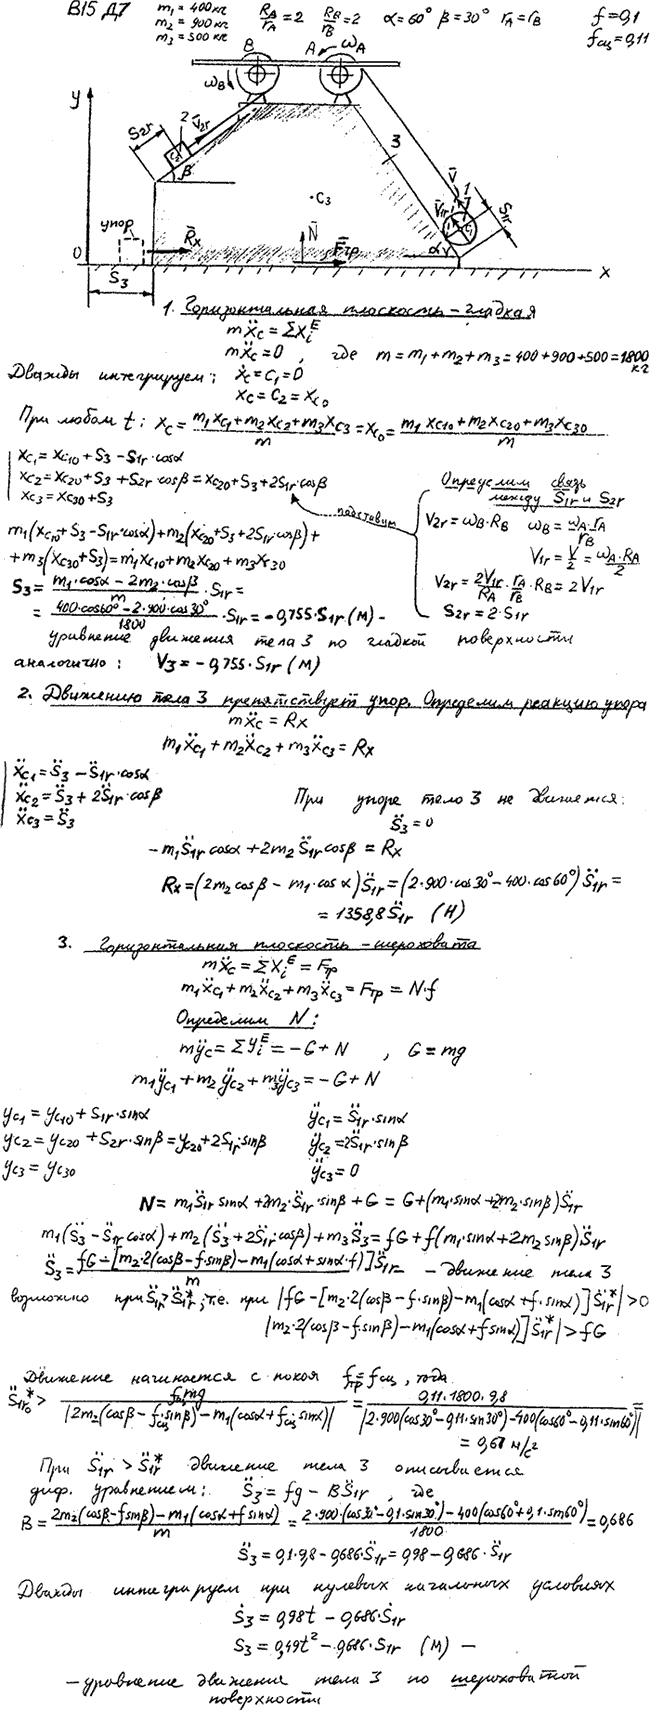 В15 Д7
m₁ = 400 кг
m₂ = 900 кг
m₃ = 500 кг
R_A/r_A = 2   R_B/r_B = 2   α = 60° β = 30° r_A = r_B   f = 0,1
f_сц = 0,11
B A ω_A
ω_B
y
S₂r 2 V̄₂r
C₂ β
3
C₃
V̄ 1 S₁r
V̄₁r C₁
упор R̄x N̄ F̄тр α
0 x
S₃
1. Горизонтальная плоскость - гладкая
mẍ_c = ΣX_i^E
mẍ_c = 0 , где m = m₁ + m₂ + m₃ = 400 + 900 + 500 = 1800 кг
Дважды интегрируем: ẋ_c = C₁ = 0
x_c = C₂ = x_c₀
При любом t: x_c = (m₁x_c₁ + m₂x_c₂ + m₃x_c₃)/m = x_c₀ = (m₁x_c₁₀ + m₂x_c₂₀ + m₃x_c₃₀)/m
x_c₁ = x_c₁₀ + S₃ - S₁r·cosα
x_c₂ = x_c₂₀ + S₃ + S₂r·cosβ = x_c₂₀ + S₃ + 2S₁r·cosβ
x_c₃ = x_c₃₀ + S₃
подставим
Определим связь
между S₁r и S₂r
V₂r = ω_B·R_B   ω_B = ω_A·r_A/r_B
V₁r = V/2 = ω_A·R_A/2
V₂r = 2V₁r/R_A · r_A/r_B · R_B = 2V₁r
S₂r = 2·S₁r
m₁(x_c₁₀ + S₃ - S₁r·cosα) + m₂(x_c₂₀ + S₃ + 2S₁r·cosβ) +
+ m₃(x_c₃₀ + S₃) = m₁x_c₁₀ + m₂x_c₂₀ + m₃x_c₃₀
S₃ = (m₁·cosα - 2m₂·cosβ)/m · S₁r =
= (400·cos60° - 2·900·cos30°)/1800 · S₁r = -0,755·S₁r (м) -
уравнение движения тела 3 по гладкой поверхности
аналогично: V₃ = -0,755·S₁r (м)
2. Движению тела 3 препятствует упор. Определим реакцию упора
mẍ_c = Rx
m₁ẍ_c₁ + m₂ẍ_c₂ + m₃ẍ_c₃ = Rx
ẍ_c₁ = S̈₃ - S̈₁r·cosα
ẍ_c₂ = S̈₃ + 2S̈₁r·cosβ
ẍ_c₃ = S̈₃
При упоре тело 3 не движется:
S̈₃ = 0
-m₁S̈₁r cosα + 2m₂S̈₁r cosβ = Rx
Rx = (2m₂cosβ - m₁·cosα)S̈₁r = (2·900·cos30° - 400·cos60°)S̈₁r =
= 1358,8 S̈₁r (Н)
3. Горизонтальная плоскость - шероховата
mẍ_c = ΣX_i^E = Fтр
m₁ẍ_c₁ + m₂ẍ_c₂ + m₃ẍ_c₃ = Fтр = N·f
Определим N:
mÿ_c = ΣY_i^E = -G + N , G = mg
m₁ÿ_c₁ + m₂ÿ_c₂ + m₃ÿ_c₃ = -G + N
y_c₁ = y_c₁₀ + S₁r·sinα   ÿ_c₁ = S̈₁r·sinα
y_c₂ = y_c₂₀ + S₂r·sinβ = y_c₂₀ + 2S₁r·sinβ   ÿ_c₂ = 2S̈₁r·sinβ
y_c₃ = y_c₃₀   ÿ_c₃ = 0
N = m₁S̈₁r sinα + 2m₂·S̈₁r·sinβ + G = G + (m₁·sinα + 2m₂·sinβ)S̈₁r
m₁(S̈₃ - S̈₁r cosα) + m₂(S̈₃ + 2S̈₁r·cosβ) + m₃S̈₃ = fG + f(m₁·sinα + 2m₂ sinβ)S̈₁r
S̈₃ = (fG - [m₂·2(cosβ - f·sinβ) - m₁(cosα + sinα·f)]S̈₁r)/m - движение тела 3
возможно при S̈₁r > S̈₁r*, т.е. при |fG - [m₂·2(cosβ - f·sinβ) - m₁(cosα + f·sinα)]S̈₁r*| > 0
|m₂·2(cosβ - f sinβ) - m₁(cosα + f sinα)]S̈₁r*| > fG
Движение начинается с покоя fтр = fсц, тогда
S̈₁r₀* > fсц mg/|2m₂(cosβ - fсц·sinβ) - m₁(cosα + fсц sinα)| = 0,11·1800·9,8/|2·900(cos30° - 0,11·sin30°) - 400(cos60° - 0,11·sin60°)| =
= 0,67 м/с²
При S̈₁r > S̈₁r* движение тела 3 описывается
диф. уравнением: S̈₃ = fg - BS̈₁r , где
B = (2m₂(cosβ - f sinβ) - m₁(cosα + f sinα))/m = (2·900·(cos30° - 0,1·sin30°) - 400(cos60° + 0,1·sin60°))/1800 = 0,686
S̈₃ = 0,1·9,8 - 0,686·S̈₁r = 0,98 - 0,686·S̈₁r
Дважды интегрируем при нулевых начальных условиях
Ṡ₃ = 0,98t - 0,686·Ṡ₁r
S₃ = 0,49t² - 0,686·S₁r (м) -
- уравнение движения тела 3 по шероховатой
поверхности